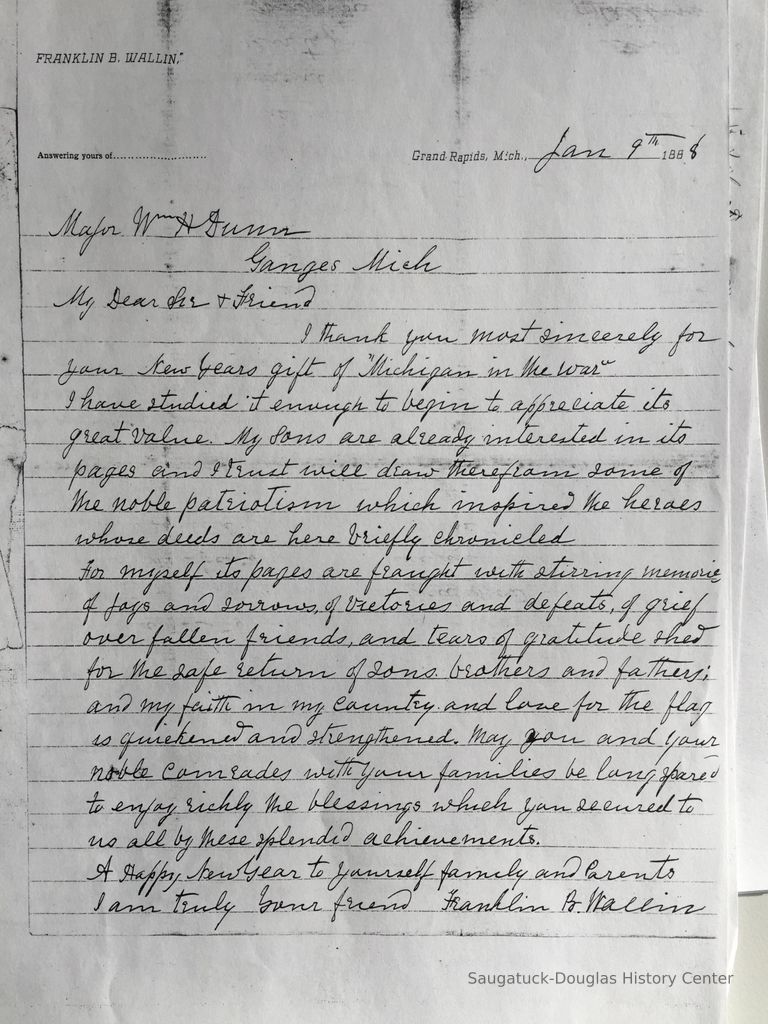 FRANKLIN B. WALLIN,
Answering yours of........................ Grand Rapids, Mich., Jan 9th 1888
Major Wm H Dunn
Ganges Mich
My Dear Sir & Friend
I thank you most sincerely for
your New Years gift of "Michigan in the war"
I have studied it enough to begin to appreciate its
great value. My Sons are already interested in its
pages and I trust will draw therefrom some of
the noble patriotism which inspired the heroes
whose deeds are here briefly chronicled
For myself its pages are fraught with stirring memories
of joys and sorrows, of victories and defeats, of grief
over fallen friends, and tears of gratitude shed
for the safe return of sons brothers and fathers;
and my faith in my country and love for the flag
is quickened and strengthened. May you and your
noble comrades with your families be long spared
to enjoy richly the blessings which you secured to
us all by these splendid achievements.
A Happy New Year to yourself family and Parents
I am truly your friend Franklin B. Wallin
Saugatuck-Douglas History Center